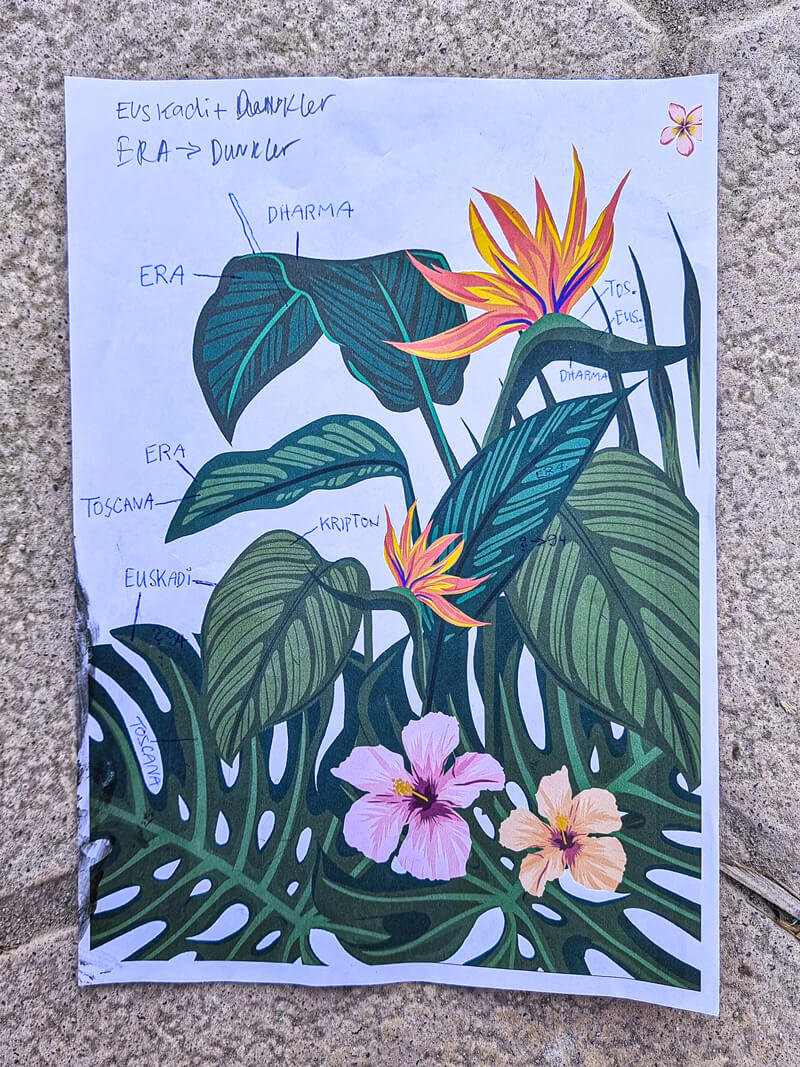 Euskadi + Dunkler
ERA → Dunkler
DHARMA
ERA
TOS.
EUS.
DHARMA
ERA
TOSCANA
ERA
KRIPTON
EUSKADI
TOSCANA